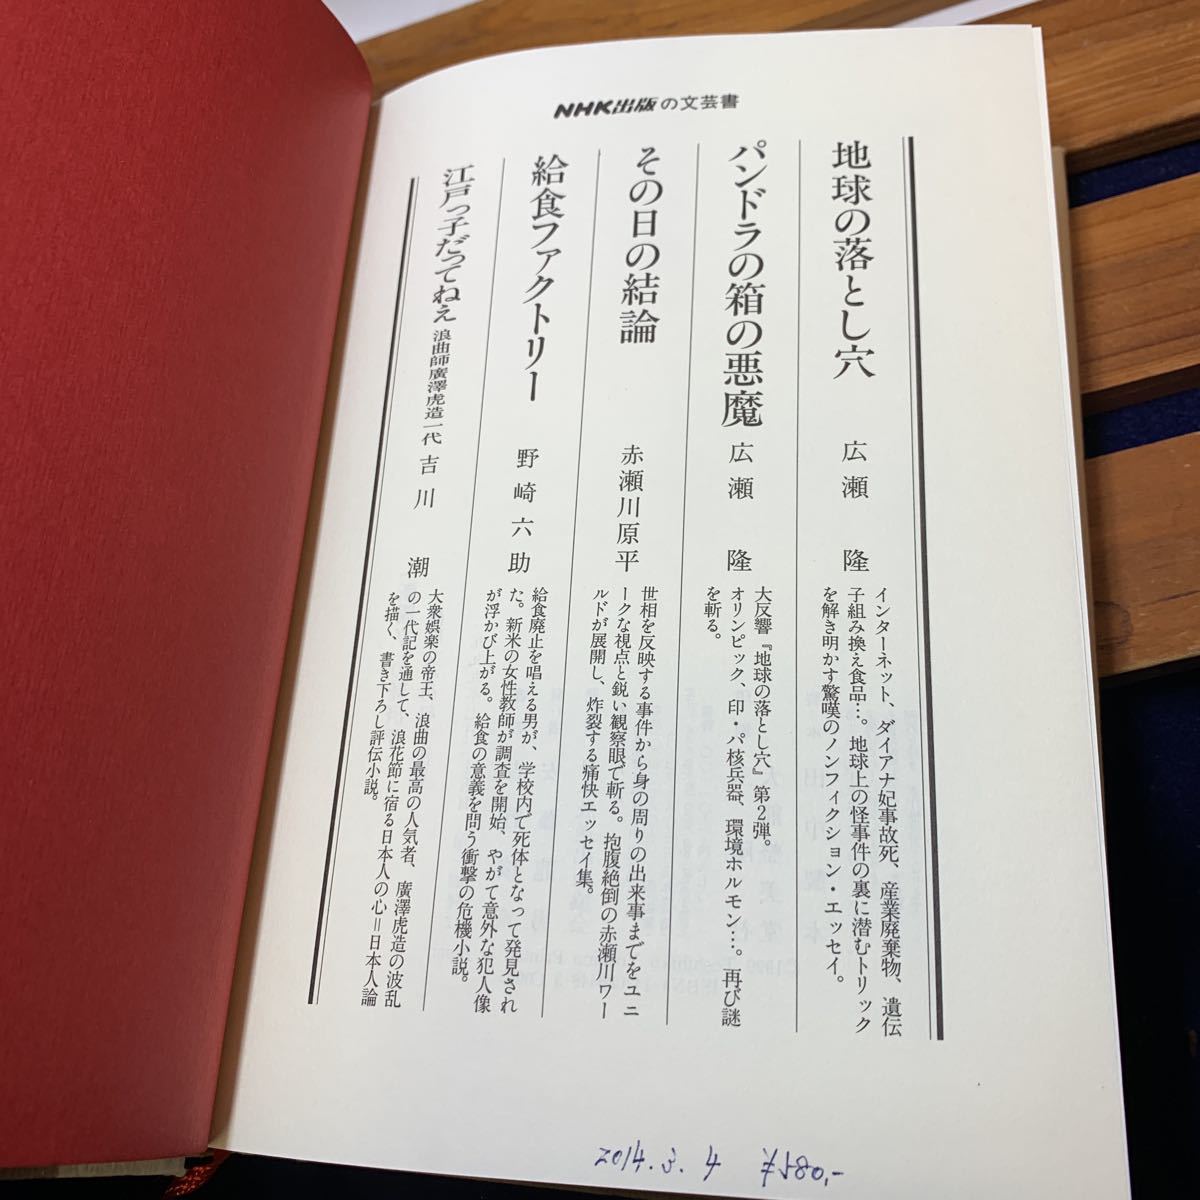 NHK出版の文芸書
地球の落とし穴 広瀬 隆
インターネット、ダイアナ妃事故死、産業廃棄物、遺伝
子組み換え食品…。地球上の怪事件の裏に潜むトリック
を解き明かす驚嘆のノンフィクション・エッセイ。
パンドラの箱の悪魔 広瀬 隆
大反響『地球の落とし穴』第2弾。
オリンピック、印・パ核兵器、環境ホルモン…。再び謎
を斬る。
その日の結論 赤瀬川原平
世相を反映する事件から身の周りの出来事までをユニ
ークな視点と鋭い観察眼で斬る。抱腹絶倒の赤瀬川ワー
ルドが展開し、炸裂する痛快エッセイ集。
給食ファクトリー 野崎六助
給食廃止を唱える男が、学校内で死体となって発見され
た。新米の女性教師が調査を開始、やがて意外な犯人像
が浮かび上がる。給食の意義を問う衝撃の危機小説。
江戸っ子だってねえ 浪曲師廣澤虎造一代 吉川 潮
大衆娯楽の帝王、浪曲の最高の人気者、廣澤虎造の波乱
の一代記を通して、浪花節に宿る日本人の心＝日本人論
を描く、書き下ろし評伝小説。
2014.3.4 ¥580,-